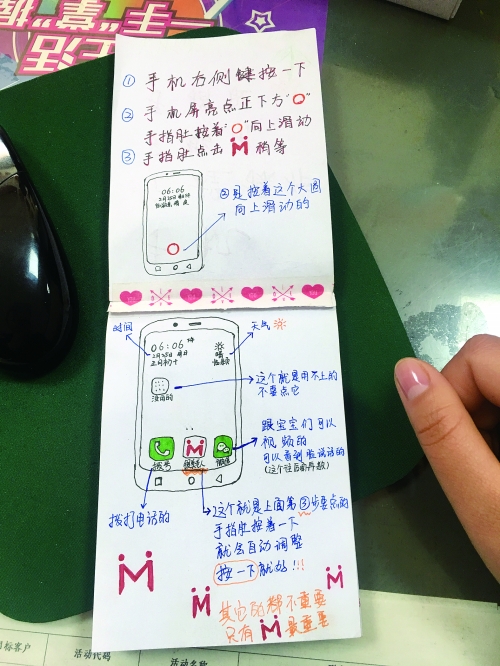 生活
二手"掌"握
① 手机右侧键按一下
② 手机屏亮点正下方"O"
手指肚按着"O"向上滑动
③ 手指肚点击 M 稍等
06:06
②是按着这个大圆
向上滑动的
时间
06:06
2月25日 周日
正月初十
天气
晴
没用的
这个就是用不上的
不要点它
跟宝宝们可以
视频的
可以看到脸说话的
(这个往后面再教)
拨号
微信
拨打电话的
这个就是上面第③步要点的
手指肚按着一下
就会自动调整
按一下就好!!!
其它的都不重要
只有 M 最重要
活动代码
活动名称
目标客户